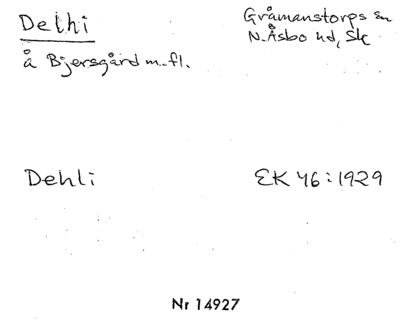 Delhi
Gråmanstorps sn
N. Åsbo hd, Sk
å Bjersgård m.fl.
Dehli
EK 46:1929
Nr 14927